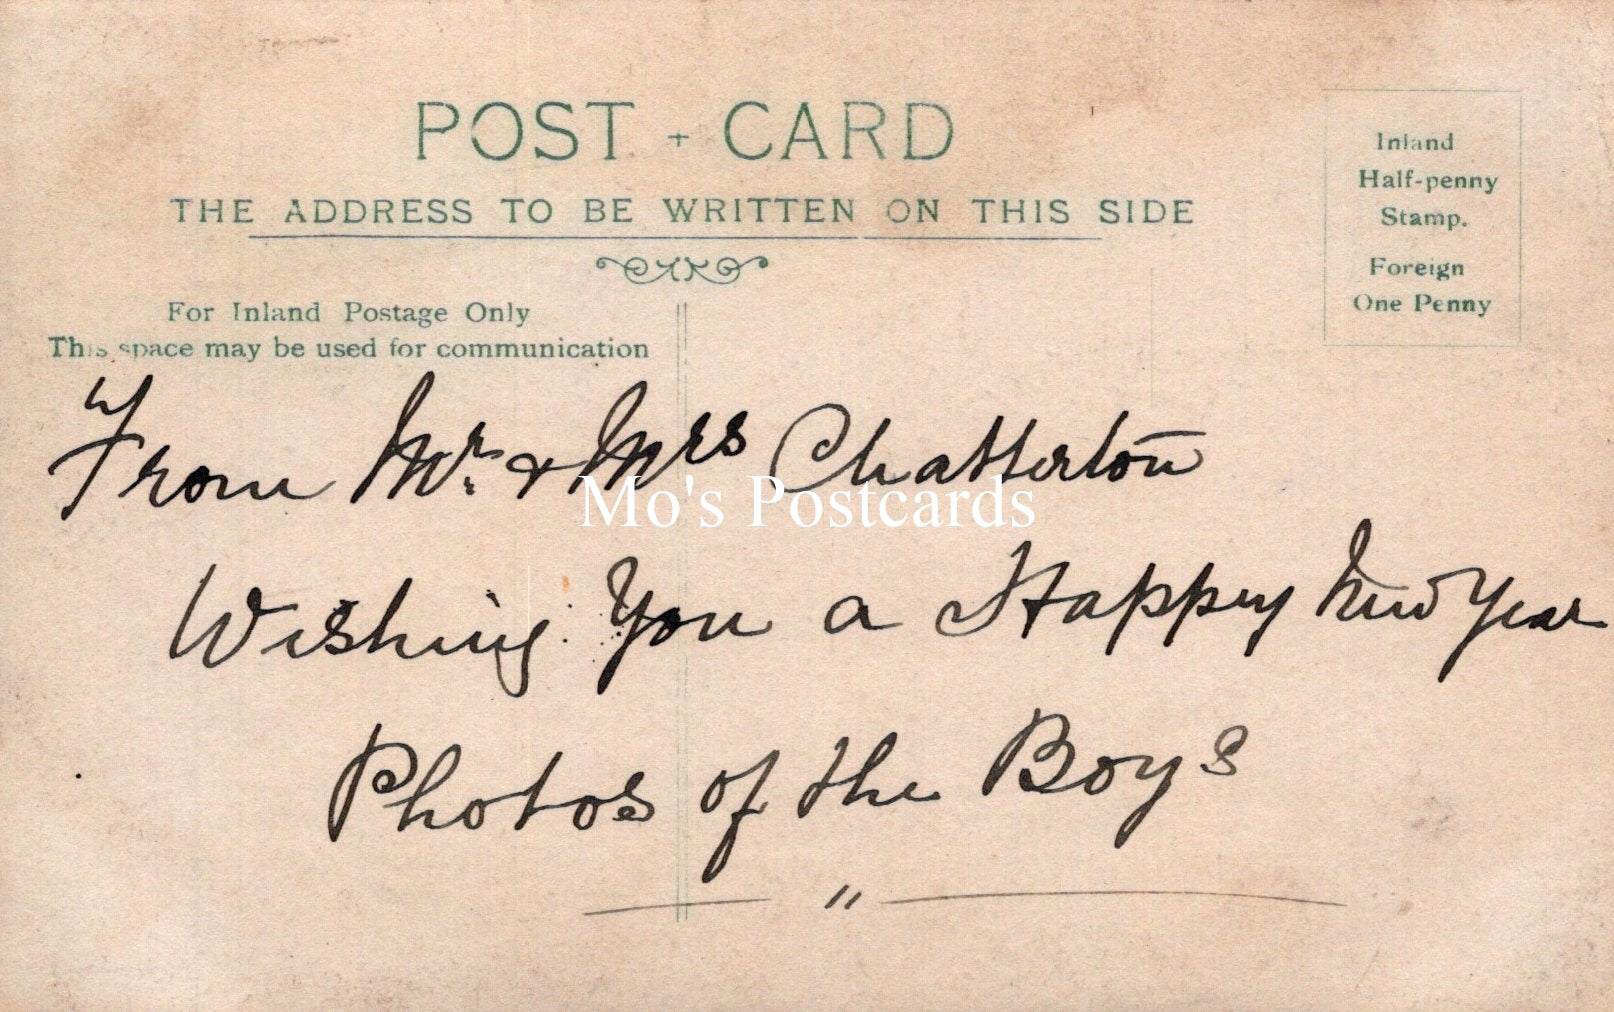 POST + CARD
THE ADDRESS TO BE WRITTEN ON THIS SIDE
Inland
Half-penny
Stamp.
Foreign
One Penny
For Inland Postage Only
This space may be used for communication
From Mr. & Mrs Chatterton
Mo's Postcards
Wishing You a Happy New Year
Photos of the Boys
"